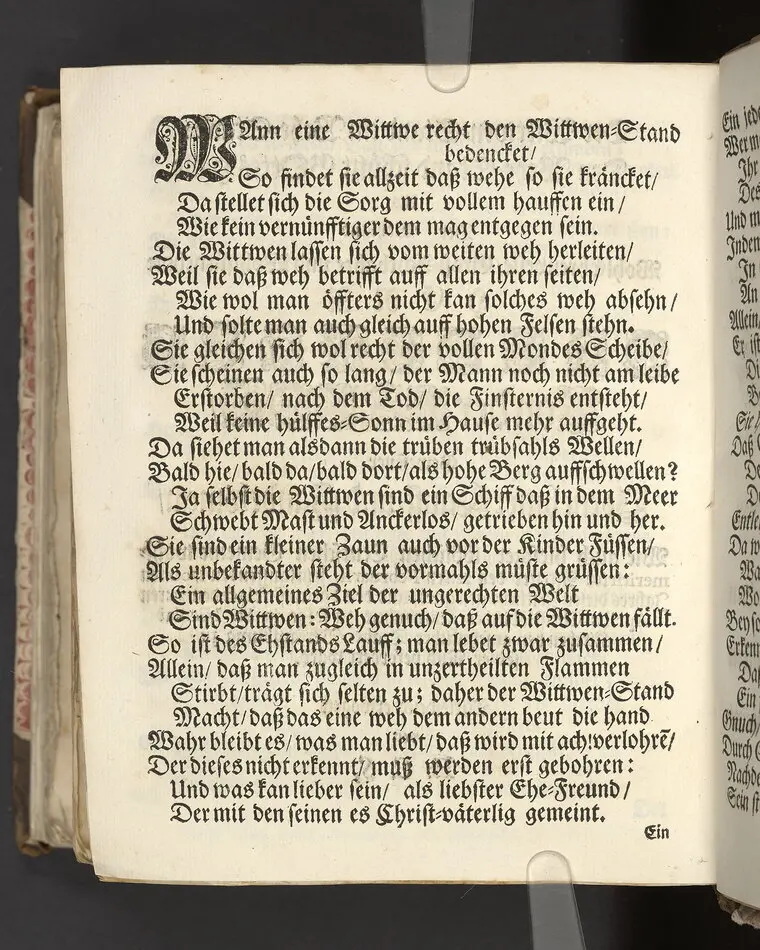 WAnn eine Wittwe recht den Wittwen-Stand
bedencket/
So findet sie allzeit daß wehe so sie kräncket/
Da stellet sich die Sorg mit vollem hauffen ein/
Wie kein vernünfftiger dem mag entgegen sein.
Die Wittwen lassen sich vom weiten weh herleiten/
Weil sie daß weh betrifft auff allen ihren seiten/
Wie wol man öffters nicht kan solches weh absehn/
Und solte man auch gleich auff hohen Felsen stehn.
Sie gleichen sich wol recht der vollen Mondes Scheibe/
Sie scheinen auch so lang/ der Mann noch nicht am leibe
Erstorben/ nach dem Tod/ die Finsternis entsteht/
Weil keine hülffes-Sonn im Hause mehr auffgeht.
Da siehet man alsdann die trüben trübsahls Wellen/
Bald hie/ bald da/ bald dort/ als hohe Berg auffschwellen?
Ja selbst die Wittwen sind ein Schiff daß in dem Meer
Schwebt Mast und Anckerlos/ getrieben hin und her.
Sie sind ein kleiner Zaun auch vor der Kinder Füssen/
Als unbekandter steht der vormahls müste grüssen:
Ein allgemeines Ziel der ungerechten Welt
Sind Wittwen: Weh genuch/ daß auf die Wittwen fällt.
So ist des Ehstands Lauff; man lebet zwar zusammen/
Allein/ daß man zugleich in unzertheilten Flammen
Stirbt/ trägt sich selten zu; daher der Wittwen-Stand
Macht/ daß das eine weh dem andern beut die hand
Wahr bleibt es/ was man liebt/ daß wird mit ach! verlohrē/
Der dieses nicht erkennt/ muß werden erst gebohren:
Und was kan lieber sein/ als liebster Ehe-Freund/
Der mit den seinen es Christ-väterlig gemeint.
Ein
Ein jed
Wer m
Ihr
Des
Und m
Indem
In
An
Allein/
Er ist
Di
Sie
Daß
De
D
Entle
Da w
Wa
Wo
Bey so
Erken
Daß
Ein
Gnuch/
Durch
Nachde
Sein st